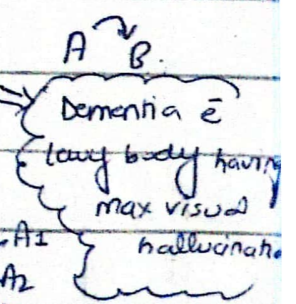 A B.
Dementia c̄
lewy body having
max visual
hallucinatn.
A1
A2